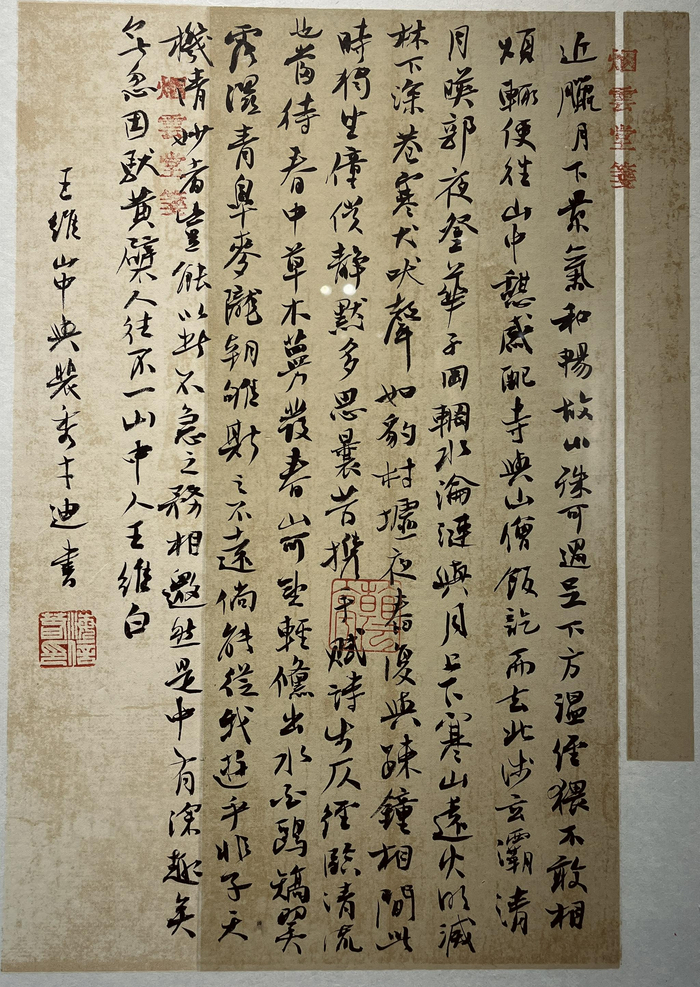 烟雲堂箋
近臘月下景氣和暢故山殊可過足下方溫經猥不敢相
煩輒便往山中憇感配寺與山僧飯訖而去北涉玄灞清
月暎郭夜登華子岡輞水淪漣與月上下寒山遠火明滅
林下深巷寒犬吠聲如豹村墟夜舂復與疎鐘相間此
時獨坐僮僕靜默多思曩昔携手賦詩步仄徑臨清流
也當待春中草木蔓發春山可望輕鯈出水白鷗矯翼
露濕青皋麥隴朝雊斯之不遠倘能從我遊乎非子天
機清妙者豈能以此不急之務相邀然是中有深趣矣
烟雲堂箋
無忽因馱黃檗人往不一山中人王維白
王維山中與裴秀才迪書